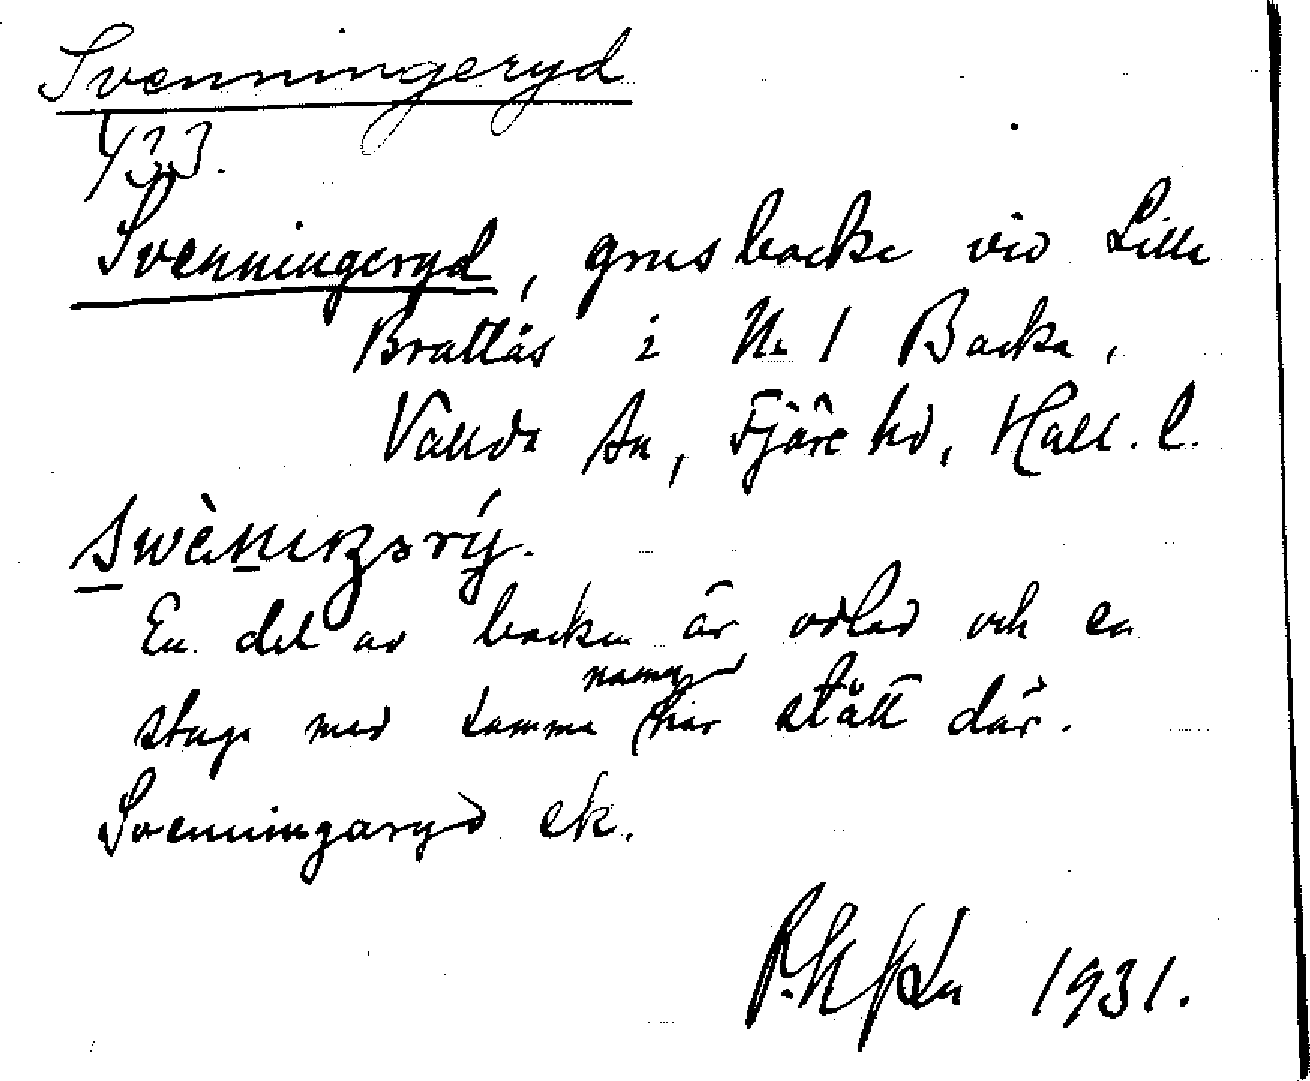 Svenningeryd
433.
Svenningeryd, grusbacke vid Lilla
Brattås i N:o 1 Backa,
Vallda sn, Fjäre hd, Hall. l.
En del av backen är odlad och en
stuga med samma namn har stått där.
Svenningaryd ek.
1931.